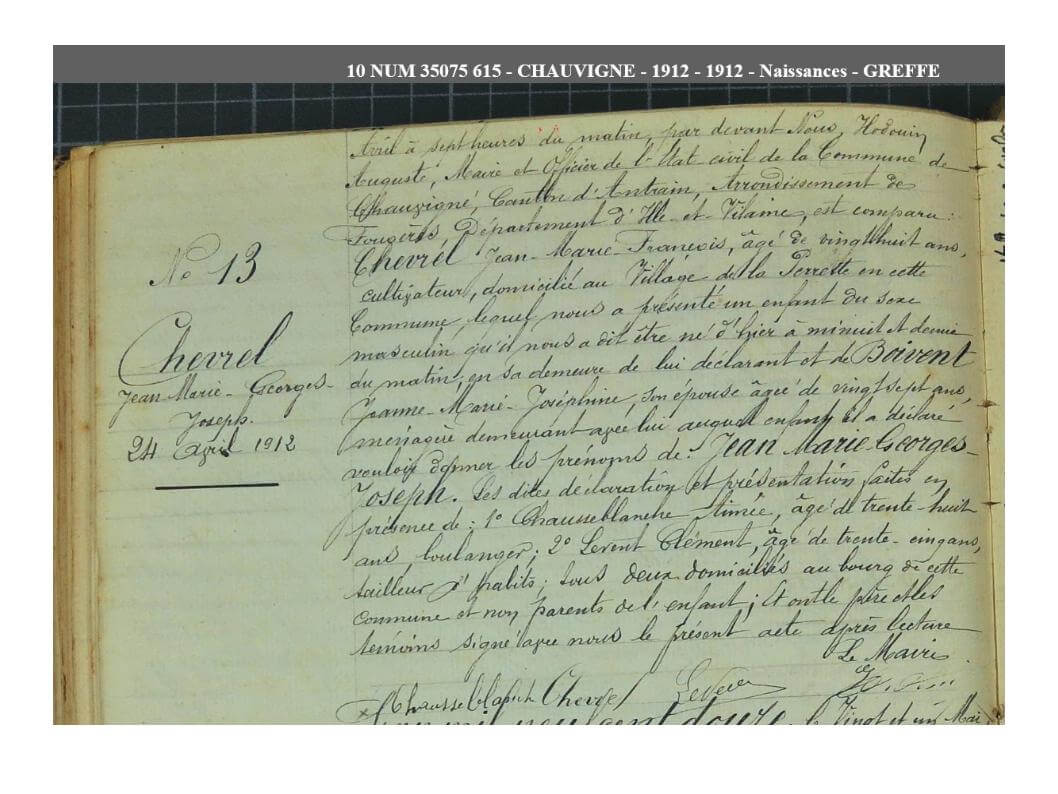 10 NUM 35075 615 - CHAUVIGNE - 1912 - 1912 - Naissances - GREFFE
Avril à sept heures du matin, par devant Nous, Hodouin
Auguste, Maire et Officier de l'Etat civil de la Commune de
Chauvigné, Canton d'Antrain, Arrondissement de
Fougères, Département d'Ille-et-Vilaine, est comparu :
Chevrel Jean-Marie-François, âgé de vingt huit ans,
cultivateur, domicilié au Village de la Perrette en cette
Commune lequel nous a présenté un enfant du sexe
masculin qu'il nous a dit être né d'hier à minuit et demie
du matin, en sa demeure de lui déclarant et de Boivent
Jeanne-Marie-Joséphine, son épouse âgée de vingt sept ans,
ménagère demeurant avec lui auquel enfant il a déclaré
vouloir donner les prénoms de : Jean Marie-Georges-
Joseph. Les dites déclaration et présentation faites en
présence de : 1º Chausseblanche Aimée, âgé de trente-huit
ans, boulanger ; 2º Levent Clément, âgé de trente-cinq ans,
tailleur d'habits ; tous deux domiciliés au bourg de cette
commune et non parents de l'enfant ; Et ont le père et les
témoins signé avec nous le présent acte après lecture
Le Maire
Chausseblanche Chevrel
mil neuf cent douze, le Vingt et un Mai
Nº 13
Chevrel
Jean-Marie-Georges-
Joseph.
24 avril 1912